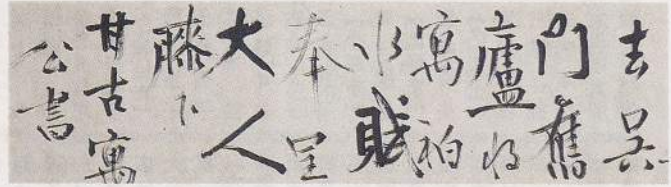 去吴
门舊
廬將
寓柏
水賦
奉呈
大人
膝下
甘古寓
公書